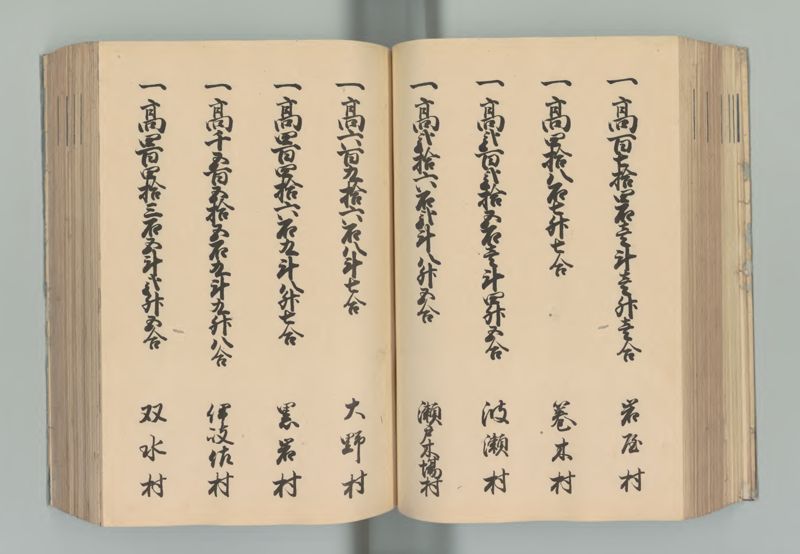 一高百七拾四石壱斗壱升壱合 岩屋村
一高四拾八石七升七合 巻木村
一高弐百弐拾五石壱斗四升五合 波瀬村
一高弐拾六石弐斗八升五合 瀬戸木場村
一高六百九拾六石八斗七合 大野村
一高四百四拾六石九斗八升七合 黒岩村
一高千五百五拾五石九斗九升八合 伊岐佐村
一高四百四拾三石五斗弐升五合 双水村